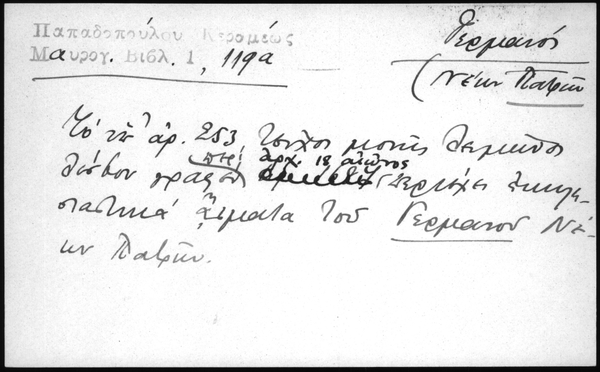 Παπαδοπούλου Κεραμέως
Μαυρογ. Βιβλ. 1, 119α
Γερμανός
(Νέων Πατρῶν
Τὸ ὑπ' ἀρ. 253 τεῦχος μονῆς Λειμῶνος
Λέσβου γραφὲν περὶ ἀρχ. 18 αἰῶνος περιέχει ἐκκλη-
σιαστικὰ ᾄσματα τοῦ Γερμανοῦ Νέ-
ων Πατρῶν.